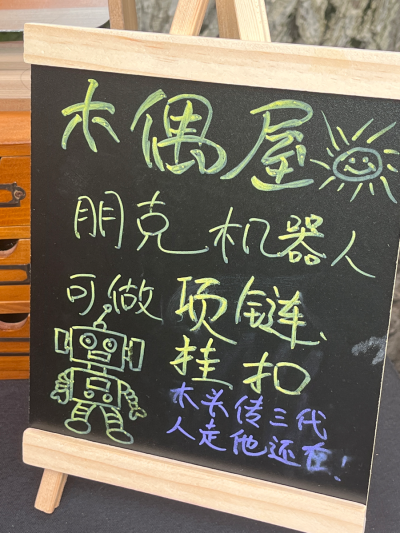 木偶屋
朋克机器人
可做项链
挂扣
木头传三代
人走他还在!